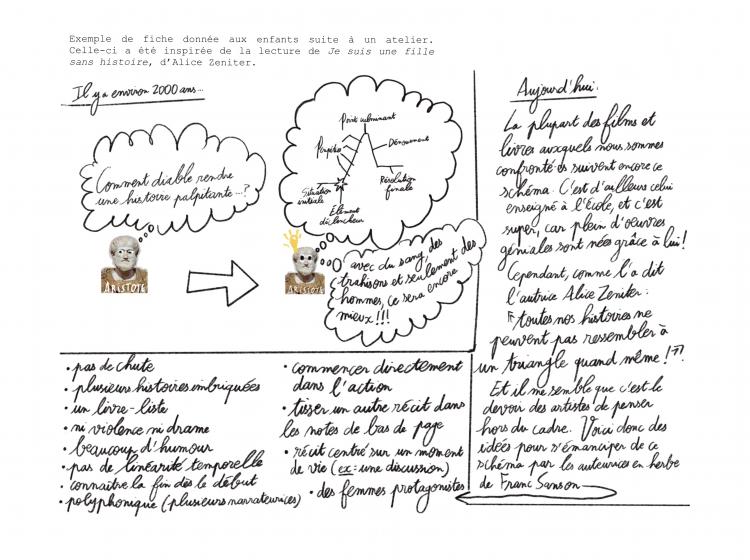 Exemple de fiche donnée aux enfants suite à un atelier.
Celle-ci a été inspirée de la lecture de Je suis une fille
sans histoire, d'Alice Zeniter.
Il y a environ 2000 ans...
Comment diable rendre
une histoire palpitante...?
ARISTOTE
Point culminant
Péripéties
Dénouement
Situation
initiale
Résolution
finale
Élément
déclencheur
ARISTOTE
avec du sang, des
trahisons et seulement des
hommes, ce sera encore
mieux!!!
Aujourd'hui:
La plupart des films et
livres auxquels nous sommes
confronté·es suivent encore ce
schéma. C'est d'ailleurs celui
enseigné à l'École, et c'est
super, car plein d'oeuvres
géniales sont nées grâce à lui!
Cependant, comme l'a dit
l'autrice Alice Zeniter:
"toutes nos histoires ne
peuvent pas ressembler à
un triangle quand même!"
Et il me semble que c'est le
devoir des artistes de penser
hors du cadre. Voici donc des
idées pour s'émanciper de ce
schéma par les auteurices en herbe
de Franc Sanson
• pas de chute
• plusieurs histoires imbriquées
• un livre-liste
• ni violence ni drame
• beaucoup d'humour
• pas de linéarité temporelle
• connaître la fin dès le début
• polyphonique (plusieurs narrateurices)
• commencer directement
dans l'action
• tisser un autre récit dans
les notes de bas de page
• récit centré sur un moment
de vie (ex: une discussion)
• des femmes protagonistes